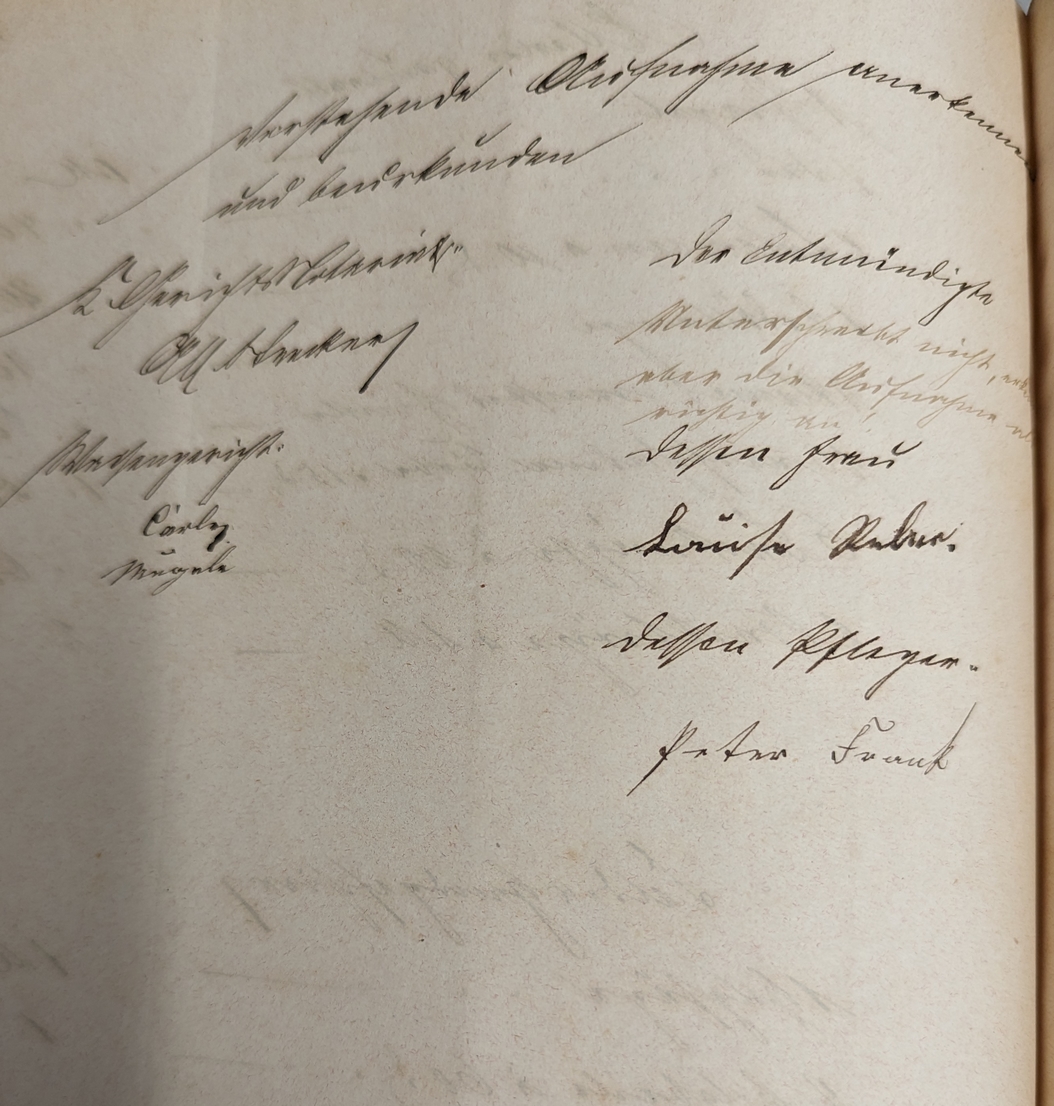 Vorstehende Aufnahme anerkennen
und beurkunden
K. Gerichtsnotariat.
Strecker
Waisengericht.
Mugele
Der Entmündigte
Unterschreibt nicht,
aber die Aufnahme
richtig an!
dessen Frau
Lauise Reber.
dessen Pfleger.
Peter Frank